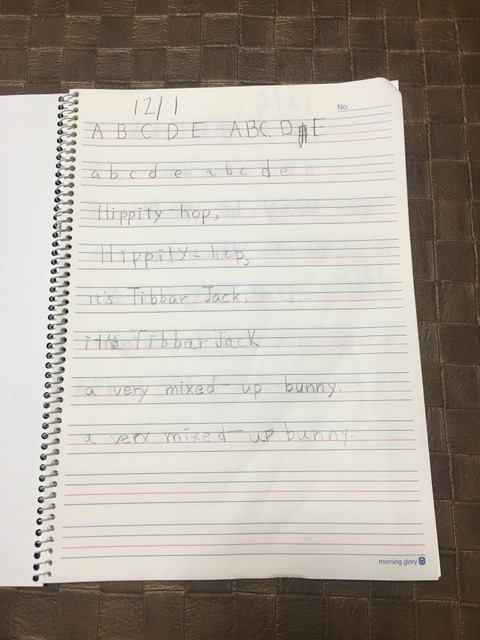 12/1
No.
A B C D E A B C D E
a b c d e a b c d e
Hippity-hop,
Hippity-hop,
it's Tibbar Jack,
it's Tibbar Jack
a very mixed-up bunny.
a very mixed-up bunny.
morning glory